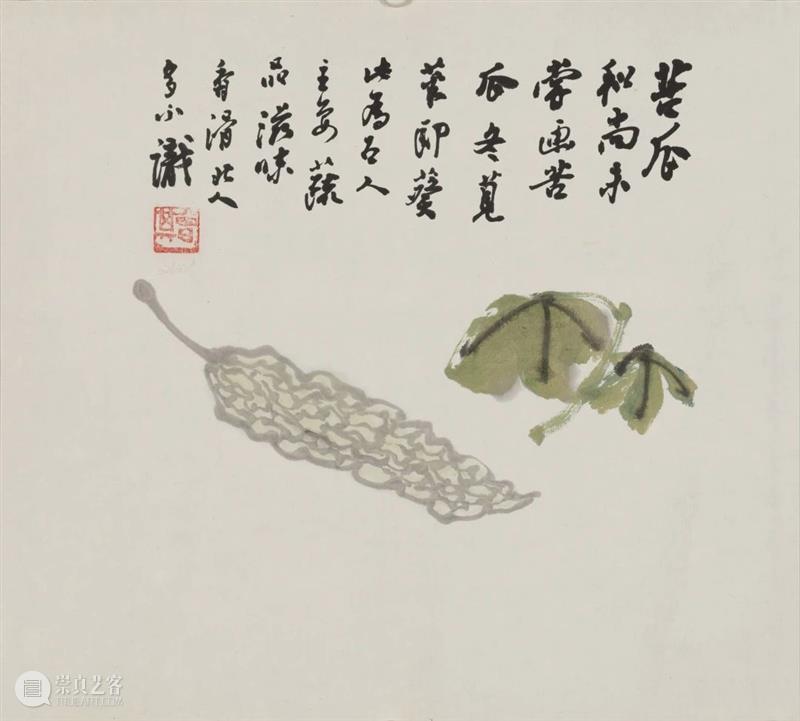 苦瓜
和尚未
嘗画苦
瓜冬莧
菜即葵
此為古人
主要蔬
品滋味
香滑北人
多不識
崇真艺客
TRUEART.COM